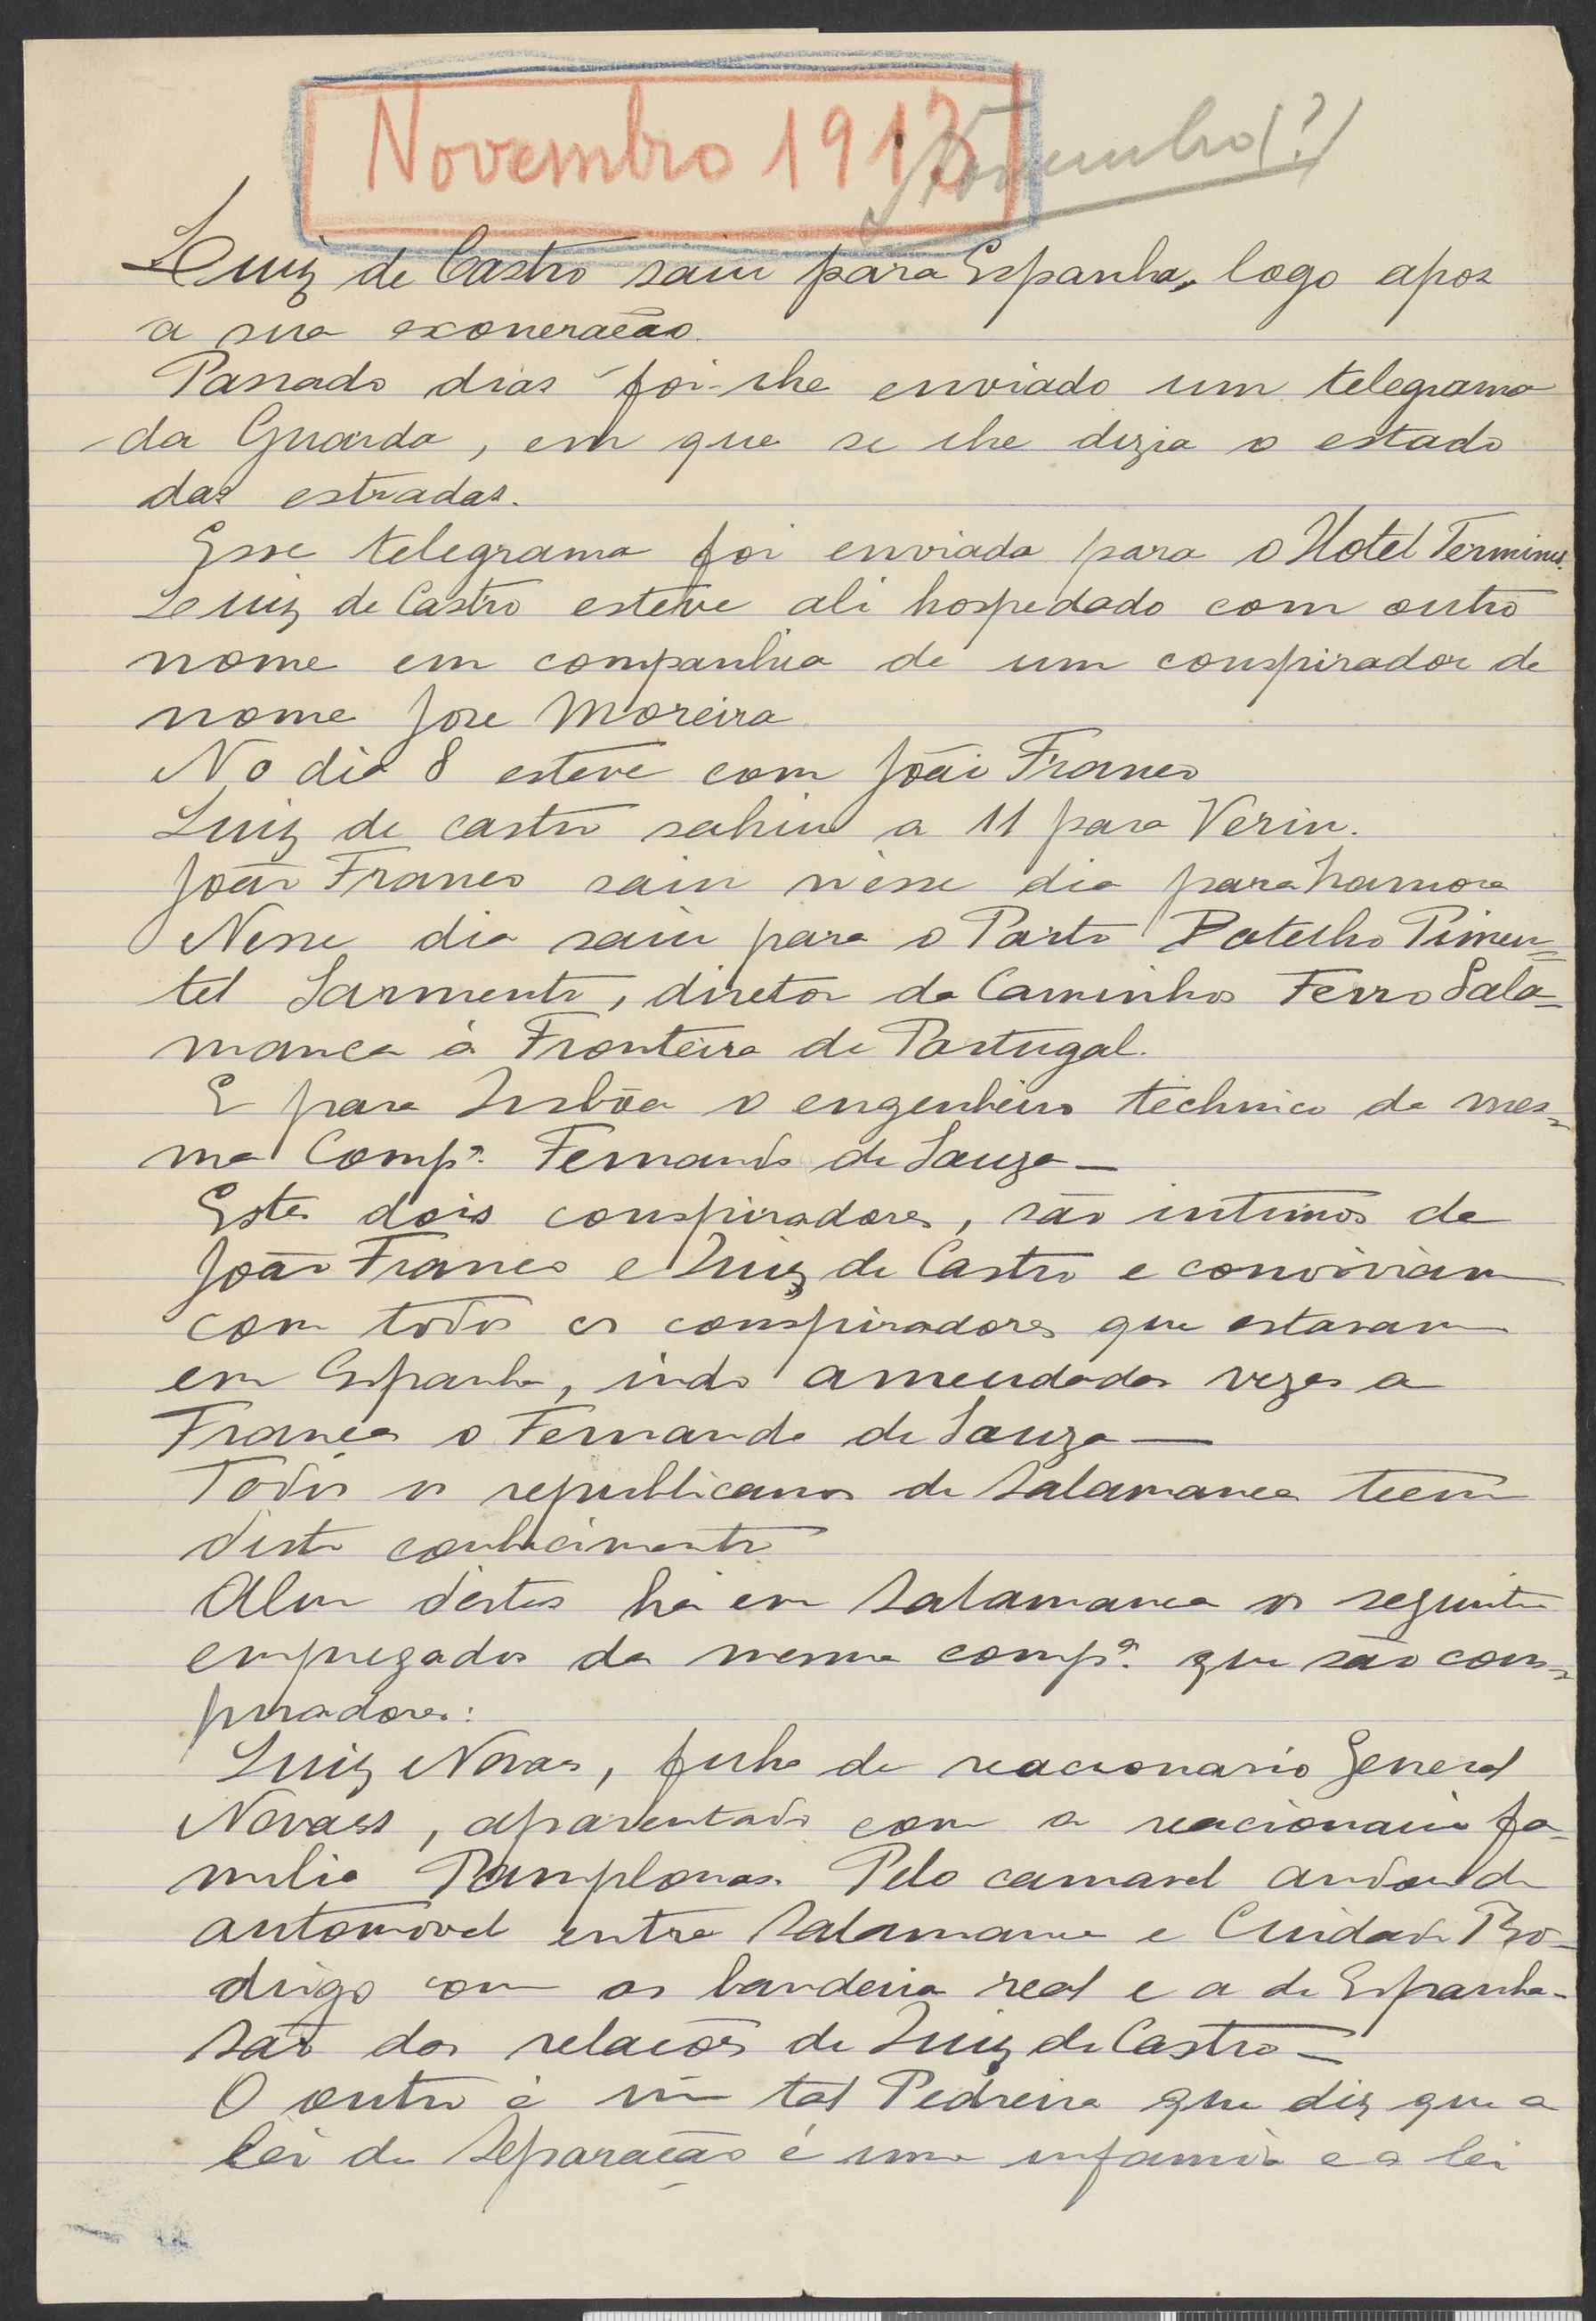 Novembro 1913
Novembro (?)
Luiz de Castro saiu para Espanha, logo apos
a sua exoneração.
Passado dias foi-lhe enviado um telegrama
da Guarda, em que se lhe dizia o estado
das estradas.
Esse telegrama foi enviado para o Hotel Terminus.
Luiz de Castro esteve ali hospedado com outro
nome em companhia de um conspirador de
nome Jose Moreira
No dia 8 esteve com João Franco
Luiz de castro sahiu a 11 para Verin.
João Franco saiu n'esse dia para Zamora
Nesse dia saiu para o Porto Botelho Pimen=
tel Sarmento, diretor da Caminhos Ferro Sala=
manca á Fronteira de Portugal.
E para Lisbôa o engenheiro technico da mes=
ma Compª. Fernando de Souza —
Estes dois conspiradores, são intimos de
João Franco e Luiz de Castro e conviviam
com todos os conspiradores que estavam
em Espanha, indo ameudadas vezes a
França o Fernando de Souza —
Todos os republicanos de Salamanca teem
disto conhecimento
Alem d'estes há em Salamanca os seguintes
empregados da mesma compª. que são cons=
piradores:
Luiz Novaes, filho do reacionario General
Novaes, aparentado com a reacionaria fa-
milia Pamplonas. Pelo carnaval andou de
automovel entre Salamanca e Cuidade Ro-
drigo com as bandeira real e a de Espanha -
São das relações de Luiz de Castro —
O outro é um tal Pedreira que diz que a
lei da Separação é uma infamia e a lei